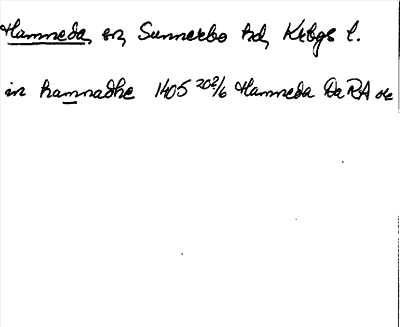 Hamneda, sn, Sunnerbo hd, Krbgs l.
in hamnadhe 1405 202/6 Hamneda Da RA or